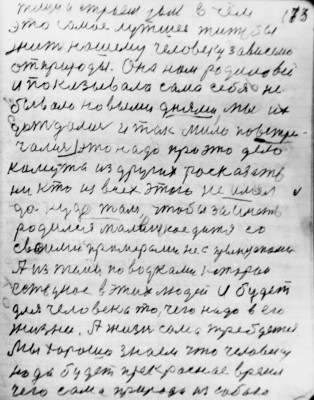 173
это самое лутшее житбы
жит нашему человеку зависимо
от природы. Она нам родиловой
и показывала сама себя не
бывало новыми днями, мы их
дождалис и так мило повстре-
чалис) это надо про это дело
кому та из других росказать
ни кто из всех этого не имел
чтобы занять
родился маленькое дитя со
своими примерами не с принципами
А из теми поводками которая
в этих людей и будет
для человека то, чего надо в его
жизни. А жизн сама требует
Мы хорошо знаем что человеку
надо будет прекрасное время
чего сама природа из собою